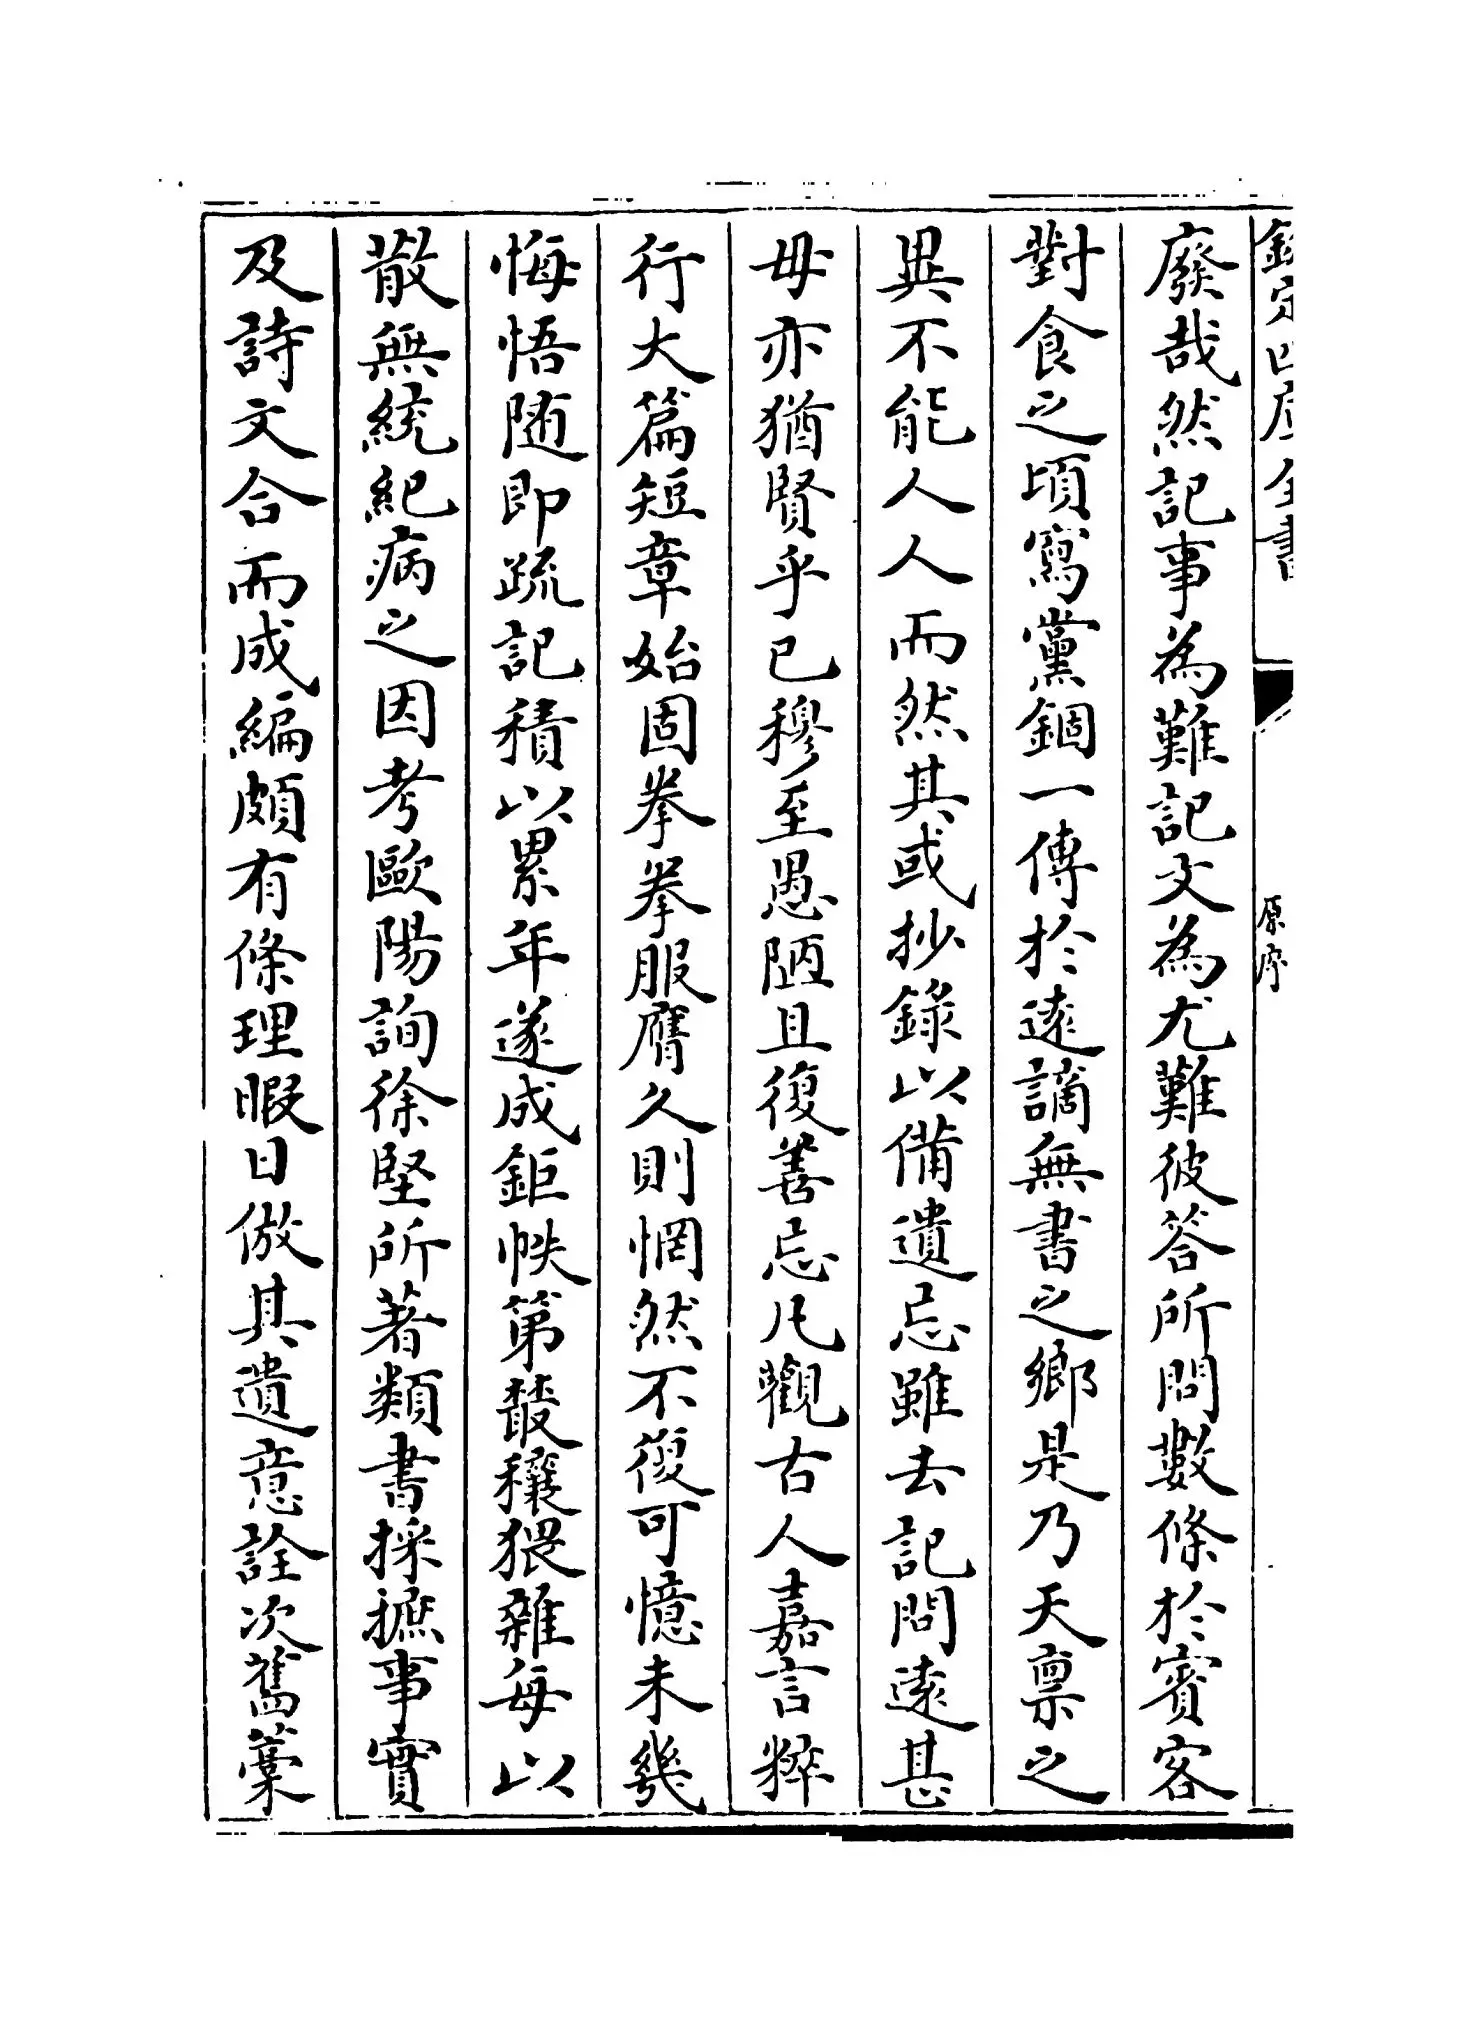 欽定四庫全書
原序
廢哉然記事為難記文為尤難彼答所問數條於賓客
對食之頃寫黨錮一傳於逺謫無書之鄉是乃天禀之
異不能人人而然其或抄錄以備遺忘雖去記問逺甚
毋亦猶賢乎已穆至愚陋且復善忘凡觀古人嘉言粹
行大篇短章始固拳拳服膺久則惘然不復可憶未幾
悔悟随即疏記積以累年遂成鉅帙第叢穰猥雜每以
散無統紀病之因考歐陽詢徐堅所著類書採摭事實
及詩文合而成編頗有條理暇日倣其遺意詮次舊藁